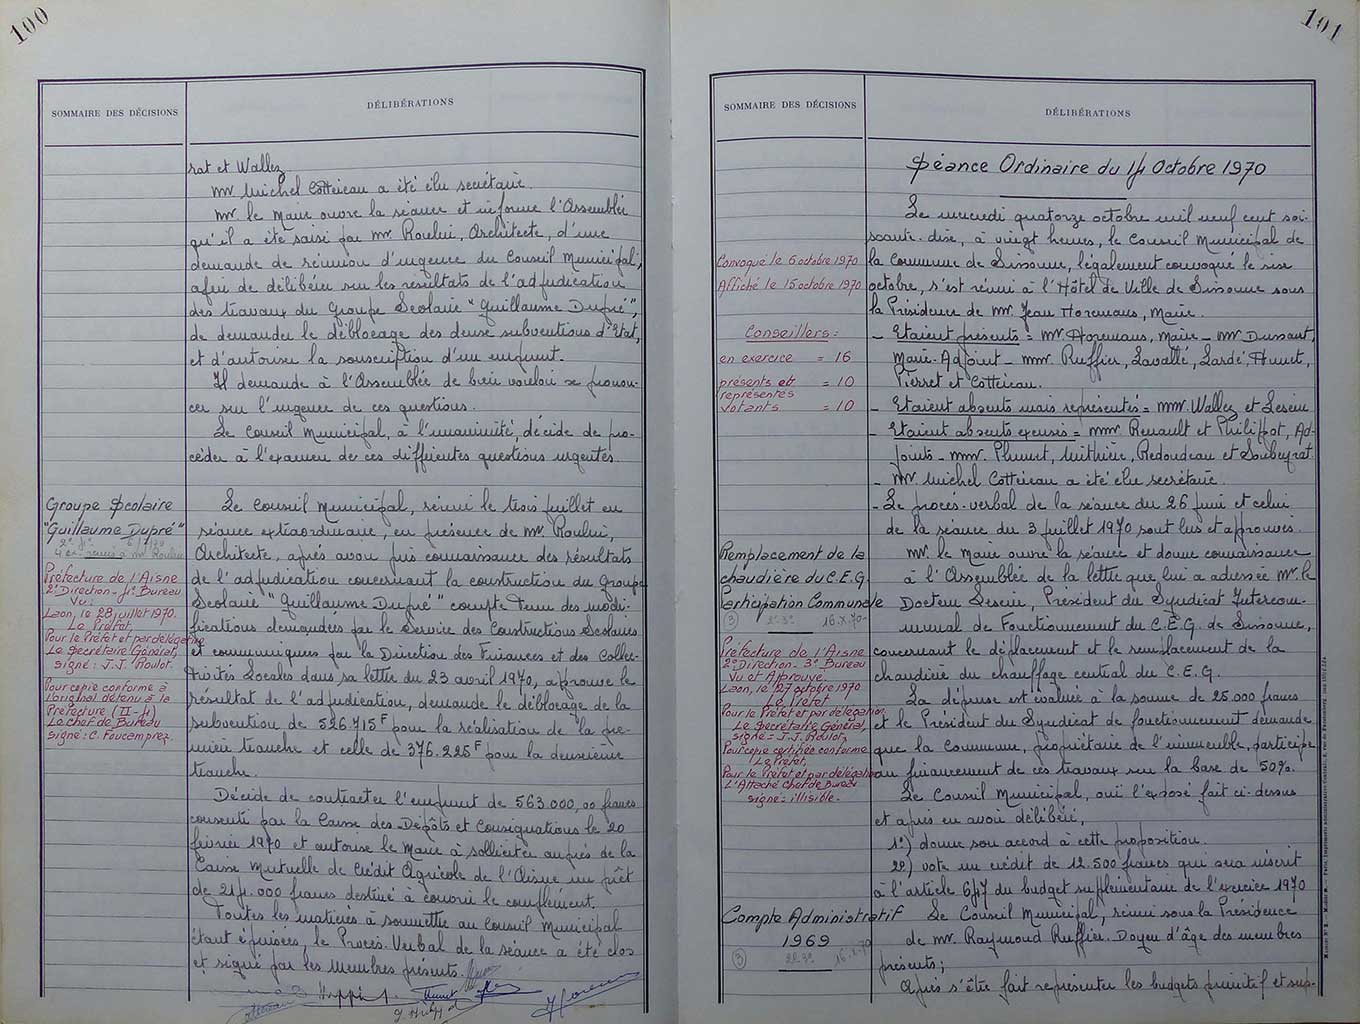 100
SOMMAIRE DES DÉCISIONS
DÉLIBÉRATIONS
rat et Wallez
Mr Michel Cotteieau a été élu secrétaire.
Mr. le Maire ouvre la séance et informe l'Assemblée
qu'il a été saisi par Mr. Roulin, Architecte, d'une
demande de réunion d'urgence du Conseil Municipal,
afin de délibérer sur les résultats de l'adjudication
des travaux du Groupe Scolaire "Guillaume Dupré",
de demander le déblocage des deux subventions d'Etat,
et d'autoriser la souscription d'un emprunt.
Il demande à l'Assemblée de bien vouloir se pronon-
cer sur l'urgence de ces questions.
Le Conseil Municipal, à l'unanimité, décide de pro-
céder à l'examen de ces différentes questions urgentes.
Groupe Scolaire
"Guillaume Dupré"
Préfecture de l'Aisne
2° Direction - 4° Bureau
Vu:
Laon, le 28 juillet 1970.
Le Préfet,
Pour le Préfet et par délégation
Le Secrétaire Général,
signé: J.J. Roulot.
Pour copie conforme à
l'original détenu à la
Préfecture (II-4)
Le chef de Bureau
signé: C. Foucamprez
Le Conseil Municipal, réuni le trois juillet en
séance extraordinaire, en présence de Mr. Roulin,
Architecte, après avoir pris connaissance des résultats
de l'adjudication concernant la construction du Groupe
Scolaire "Guillaume Dupré" compte tenu des modi-
fications demandées par le Service des Constructions Scolaires
et communiquées par la Direction des Finances et des Collec-
tivités Locales dans sa lettre du 23 avril 1970, approuve le
résultat de l'adjudication, demande le déblocage de la
subvention de 526.715F pour la réalisation de la pre-
mière tranche et celle de 376.225F pour la deuxième
tranche.
Décide de contracter l'emprunt de 563.000,00 francs
consenti par la Caisse des Dépôts et Consignations le 20
février 1970 et autorise le Maire à solliciter auprès de la
Caisse Mutuelle de Crédit Agricole de l'Aisne un prêt
de 214.000 francs destiné à couvrir le complément.
Toutes les matières à soumettre au Conseil Municipal
étant épuisées, le Procès-Verbal de la séance a été clos
et signé par les membres présents.
101
SOMMAIRE DES DÉCISIONS
DÉLIBÉRATIONS
Séance Ordinaire du 14 Octobre 1970
Le mercredi quatorze octobre mil neuf cent soi-
xante-dix, à vingt heures, le Conseil Municipal de
la Commune de Sissonne, légalement convoqué le six
octobre, s'est réuni à l'Hôtel de Ville de Sissonne sous
la Présidence de Mr Jean Horemans, Maire.
Convoqué le 6 octobre 1970
Affiché le 15 octobre 1970
Conseillers:
en exercice = 16
présents et = 10
représentés
votants = 10
- Etaient présents = Mr Horemans, Maire - Mr Dussart,
Maire-Adjoint - MMr Ruffier, Lavallé, Lardé, Hunet,
Pierret et Cotteieau.
- Etaient absents mais représentés = MMr. Wallez et Leseur
- Etaient absents excusés = MMr Renault et Philippot, Ad-
joints - MMr. Redoudeau et Soubeyrat
- Mr Michel Cotteieau a été élu secrétaire.
- Le procès-verbal de la séance du 26 juin et celui
de la séance du 3 juillet 1970 sont lus et approuvés.
Remplacement de la
chaudière du C.E.G.
Participation Communale
3 2°-3° 16.X.70-
Mr le Maire ouvre la séance et donne connaissance
à l'Assemblée de la lettre que lui a adressée Mr. le
Docteur Leseur, Président du Syndicat Intercom-
munal de Fonctionnement du C.E.G. de Sissonne,
concernant le déplacement et le remplacement de la
chaudière du chauffage central du C.E.G.
Préfecture de l'Aisne
2° Direction - 3° Bureau
Vu et Approuvé.
Laon, le 27 octobre 1970
Le Préfet
Pour le Préfet et par délégation
Le Secrétaire Général,
signé = J-J. Roulot,
Pour copie certifiée conforme
Le Préfet,
Pour le Préfet et par délégation
L'Attaché Chef de Bureau
signé: illisible.
La dépense est évaluée à la somme de 25.000 francs
et le Président du Syndicat de fonctionnement demande
que la Commune, propriétaire de l'immeuble, participe
au financement de ces travaux sur la base de 50%.
Le Conseil Municipal, ouï l'exposé fait ci-dessus
et après en avoir délibéré,
1°) donne son accord à cette proposition.
2°) vote un crédit de 12.500 francs qui sera inscrit
à l'article 647 du budget supplémentaire de l'exercice 1970
Compte Administratif
1969
3 2°-3°
Le Conseil Municipal, réuni sous la Présidence
de Mr. Raymond Ruffier. Doyen d'âge des membres
présents;
Après s'être fait représenter les budgets primitif et sup-